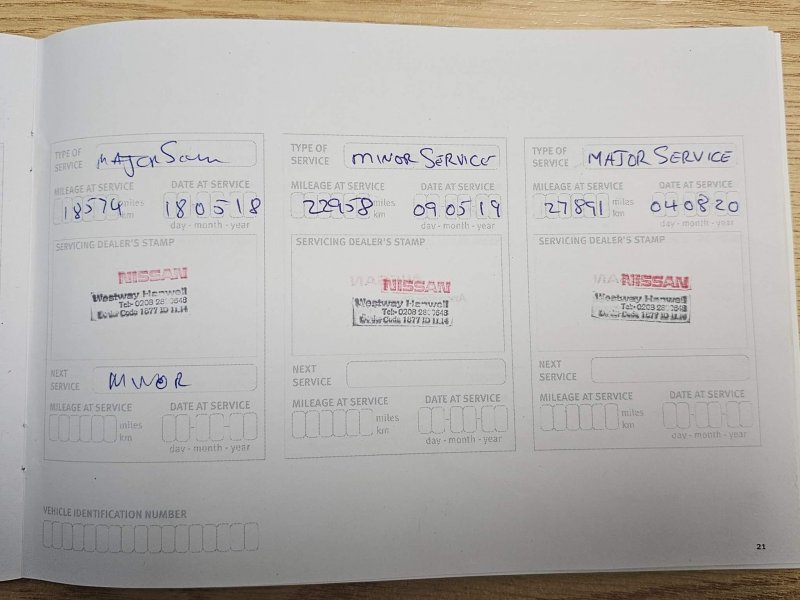 TYPE OF SERVICE MAJOR Serv
MILEAGE AT SERVICE DATE AT SERVICE
18574 miles km 18 05 18
day - month - year
SERVICING DEALER'S STAMP
NISSAN
Westway Hanwell
Tel:- 0208 28 0648
Dealer Code 1677 ID 11.14
NEXT SERVICE MINOR
MILEAGE AT SERVICE DATE AT SERVICE
miles km
day - month - year
VEHICLE IDENTIFICATION NUMBER
TYPE OF SERVICE MINOR SERVICE
MILEAGE AT SERVICE DATE AT SERVICE
22958 miles km 09 05 19
day - month - year
SERVICING DEALER'S STAMP
NISSAN
Westway Hanwell
NEXT SERVICE
MILEAGE AT SERVICE DATE AT SERVICE
miles km
day - month - year
TYPE OF SERVICE MAJOR SERVICE
MILEAGE AT SERVICE DATE AT SERVICE
27891 miles km 04 08 20
day - month - year
SERVICING DEALER'S STAMP
NISSAN
Westway Hanwell
NEXT SERVICE
MILEAGE AT SERVICE DATE AT SERVICE
miles km
day - month - year
21